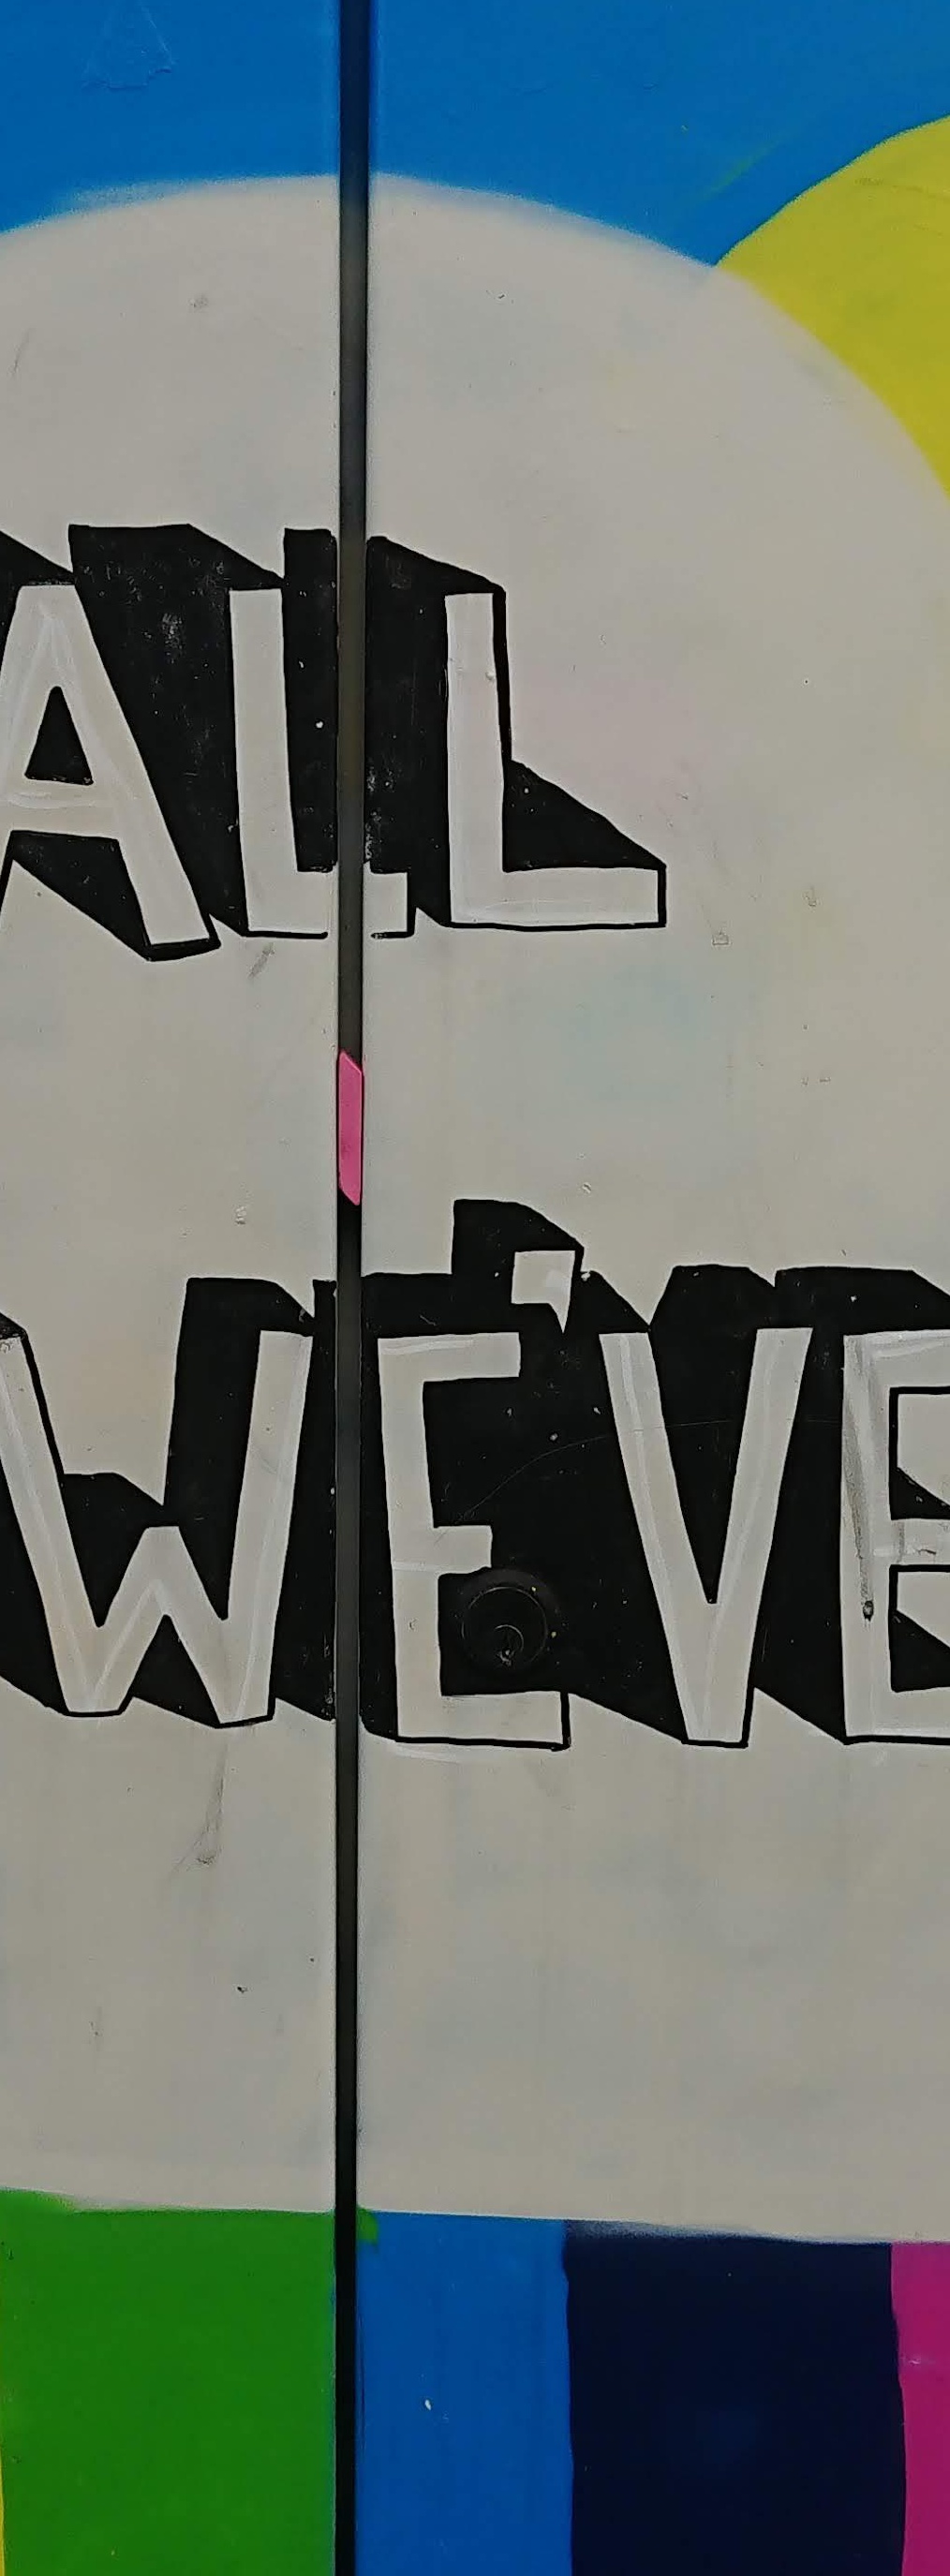 ALL
WE'VE